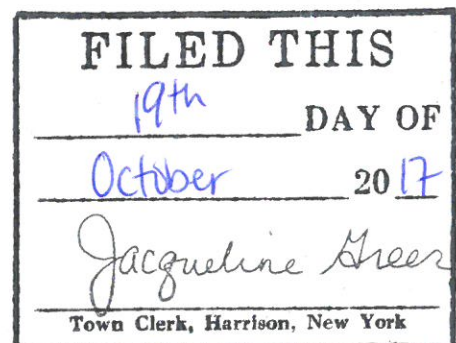 FILED THIS
19th DAY OF
October 2017
Jacqueline Greer
Town Clerk, Harrison, New York